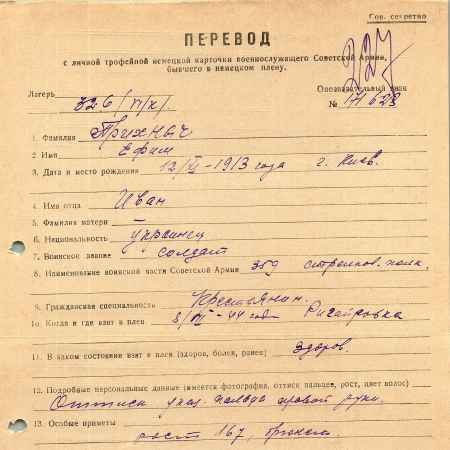 Сов. секретно
ПЕРЕВОД
с личной трофейной немецкой карточки военнослужащего Советской Армии,
бывшего в немецком плену.
227
Лагерь 326/VI/К/.
Опознавательный знак
№ 171623
1. Фамилия Прихныч
2 Имя Ефим
3. Дата и место рождения 12/VI-1913 года г. Киев.
4. Имя отца Иван
5. Фамилия матери –
6. Национальность украинец
7. Воинское звание солдат
8. Наименование воинской части Советской Армии 359 стрелков. полк.
9. Гражданская специальность Крестьянин.
10. Когда и где взят в плен 8/ -44 год
11. В каком состоянии взят в плен (здоров, болен, ранен) здоров.
12. Подробные персональные данные (имеется фотография, оттиск пальцев, рост, цвет волос)
Оттиск указ. пальца правой руки.
13. Особые приметы
рост 167,